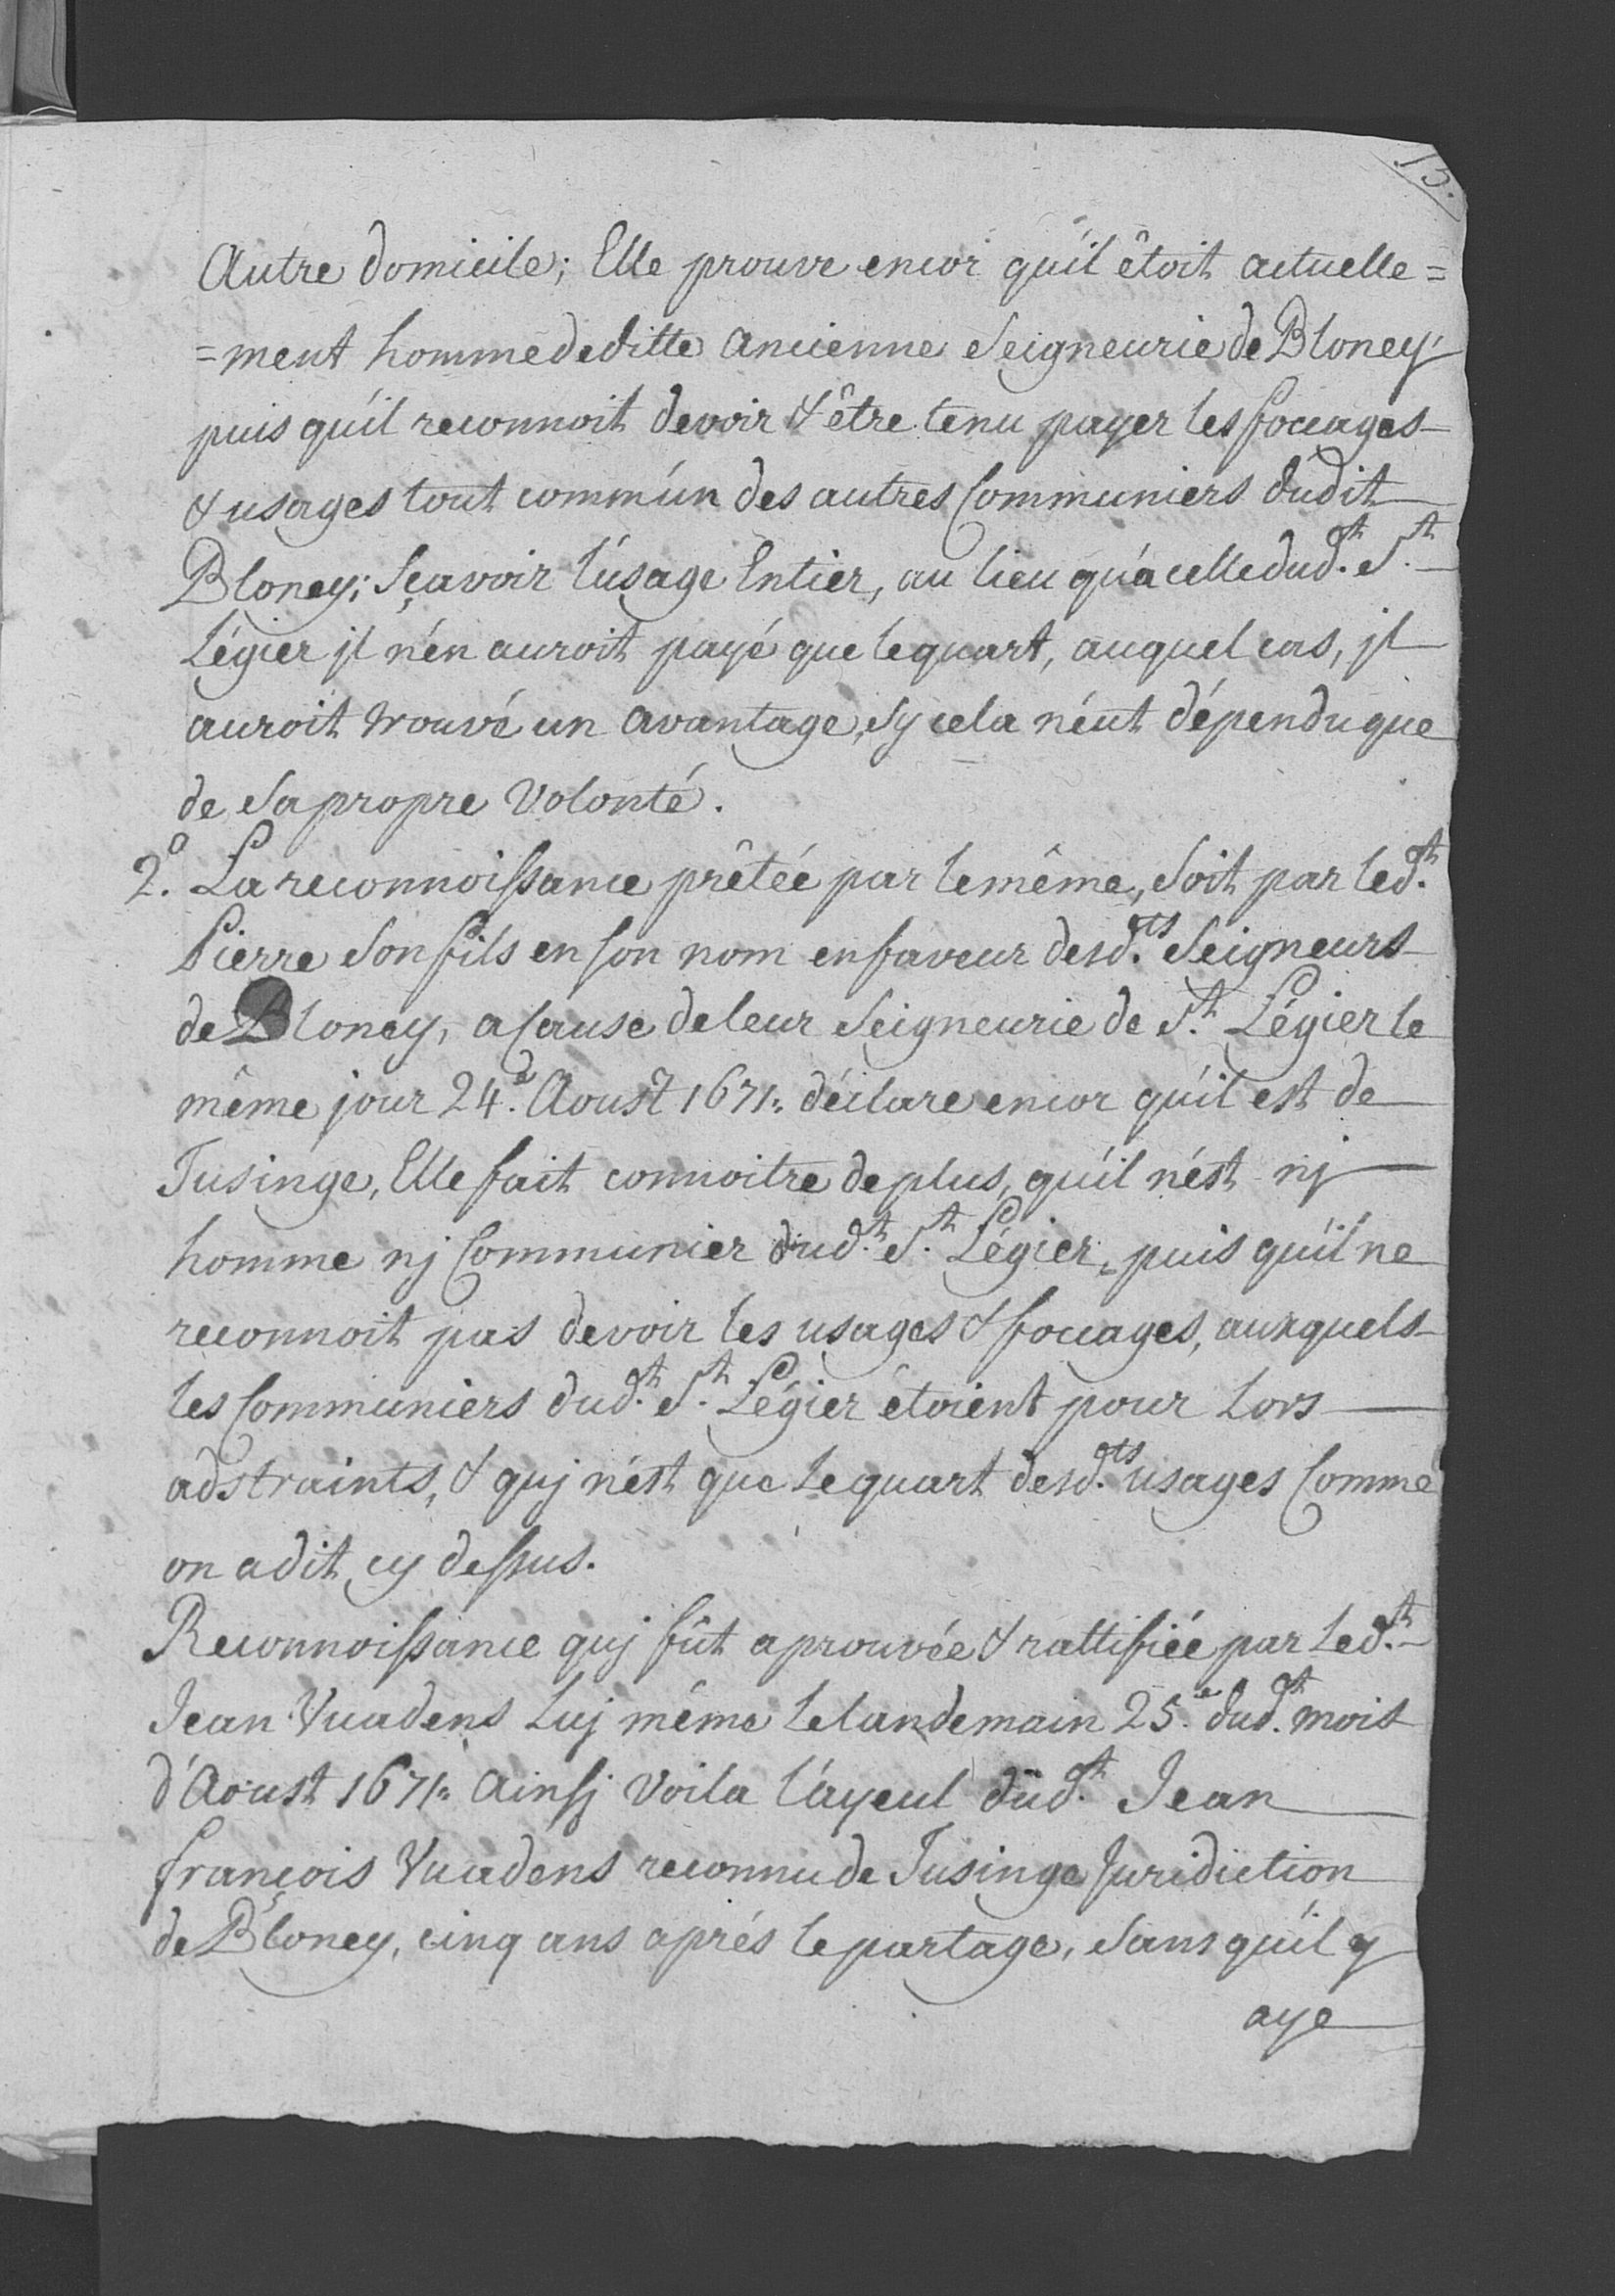 15.
Autre domicile; Elle prouve encor qu'il êtoit actuelle=
=ment homme deditte Ancienne Seigneurie de Bloney
puis qu'il reconnoit devoir & être tenu payer les focages
& usages tout commún des autres Communiers dudit
Bloney; Sçavoir l'úsage Entier, au lieu qu'a celle dud.t S.t
Légier jl n'en auroit payé que le quart, auquel cas, jl
auroit trouvé un avantage, sy cela n'éut dépendu que
de sa propre volonté.
2.o La reconnoissance prêtée par le même, soit par led.t
Pierre son fils en son nom en faveur desd.ts Seigneurs
de Bloney, a Cause de leur Seigneurie de S.t Légier le
même jour 24.e Aoust 1671. déclare encor qu'il est de
Tusinge, Elle fait connoitre de plus, qu'il n'ést nj
homme nj Communier dud.t S.t Légier, puis qu'il ne
reconnoit pas devoir les usages & focages, auxquels
les Communiers dud.t S.t Légier êtoient pour Lors
adstraints, & quj n'ést que le quart desd.ts usages Comme
on a dit cy dessus.
Reconnoissance quj fût aprouvée & rattifiée par Led.t
Jean Vuadens Luj même le landemain 25.e dud.t mois
d'Aoust 1671. Ainsj voila l'áyeul dud.t Jean
françois Vuadens reconnu de Tusinge Juridiction
de Bloney, cinq ans aprés le partage, sans qu'il y
aye